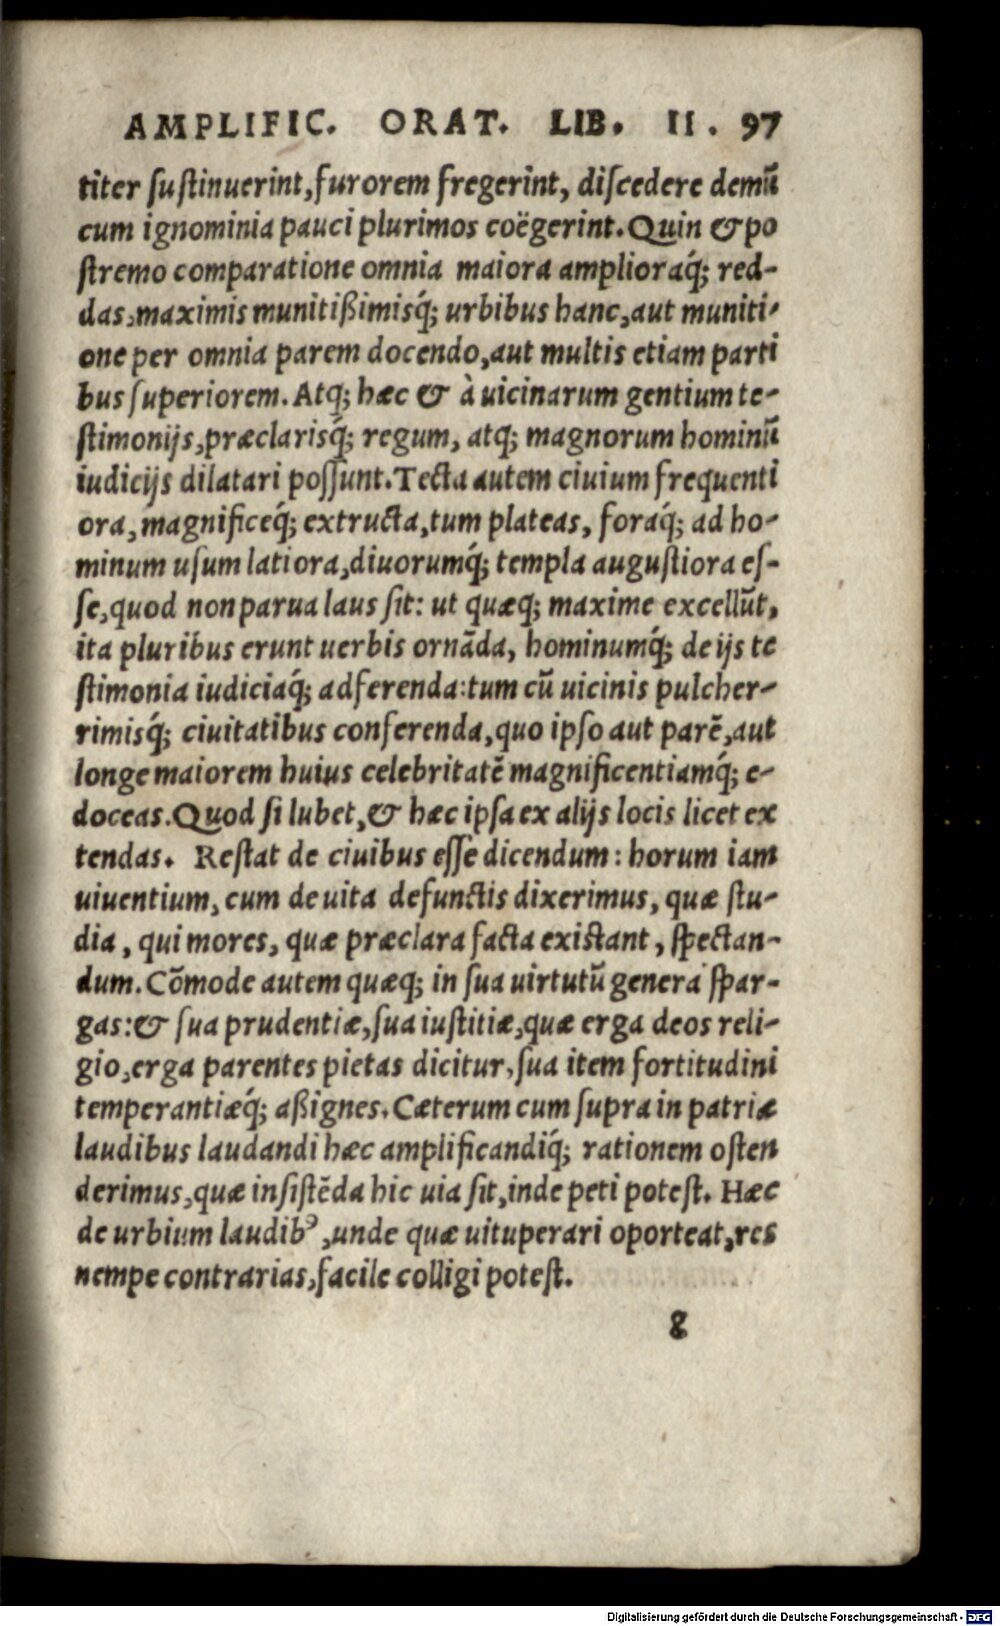 AMPLIFIC. ORAT. LIB. II. 97
titer ſuſtinuerint, furorem fregerint, diſcedere demũ
cum ignominia pauci plurimos coëgerint. Quin & po
ſtremo comparatione omnia maiora amplioraq́; red-
das, maximis munitißimisq́; urbibus hanc, aut muniti-
one per omnia parem docendo, aut multis etiam parti
bus ſuperiorem. Atq; hæc & à uicinarum gentium te-
ſtimonijs, præclarisq́; regum, atq; magnorum hominũ
iudicijs dilatari poſſunt. Tecta autem ciuium frequenti
ora, magnificeq́; extructa, tum plateas, foraq́; ad ho-
minum uſum latiora, diuorumq́; templa auguſtiora eſ-
ſe, quod non parua laus ſit: ut quæq; maxime excellũt,
ita pluribus erunt uerbis ornãda, hominumq́; de ijs te
ſtimonia iudiciaq́; adferenda: tum cũ uicinis pulcher-
rimisq́; ciuitatibus conferenda, quo ipſo aut parẽ, aut
longe maiorem huius celebritatẽ magnificentiamq́; e-
doceas. Quod ſi lubet, & hæc ipſa ex alijs locis licet ex
tendas. Reſtat de ciuibus eſſe dicendum: horum iam
uiuentium, cum de uita defunctis dixerimus, quæ ſtu-
dia, qui mores, quæ præclara facta exiſtant, ſpectan-
dum. Cõmode autem quæq; in ſua uirtutũ genera ſpar-
gas: & ſua prudentiæ, ſua iuſtitiæ, quæ erga deos reli-
gio, erga parentes pietas dicitur, ſua item fortitudini
temperantiæq́; aßignes. Cæterum cum ſupra in patriæ
laudibus laudandi hæc amplificandiq́; rationem oſten
derimus, quæ inſiſtẽda hic uia ſit, inde peti poteſt. Hæc
de urbium laudibꝰ, unde quæ uituperari oporteat, res
nempe contrarias, facile colligi poteſt.
g
Digitalisierung gefördert durch die Deutsche Forschungsgemeinschaft - DFG